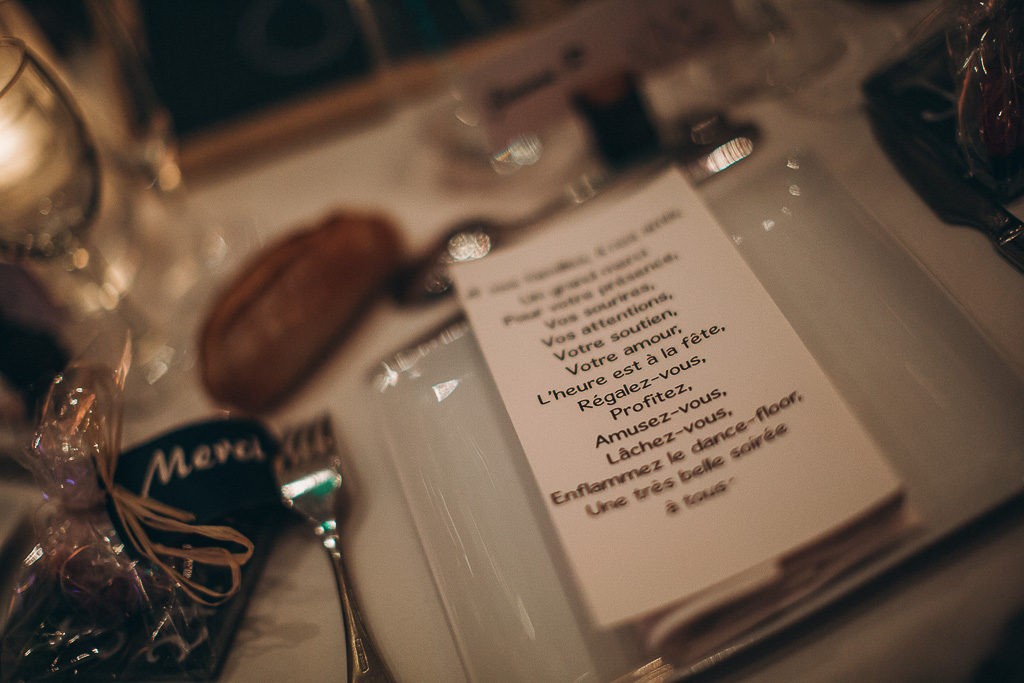 À nos familles, à nos amis
Un grand merci
Pour votre présence,
Vos sourires,
Vos attentions,
Votre soutien,
Votre amour,
L'heure est à la fête,
Régalez-vous,
Profitez,
Amusez-vous,
Lâchez-vous,
Enflammez le dance-floor,
Une très belle soirée
à tous
Merci